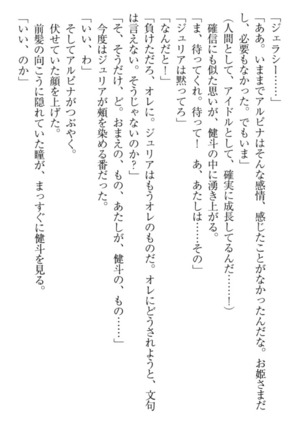 「ジェラシー……」
「ああ。いままでアルビナはそんな感情、感じたことがなかったんだな。お姫さまだ
し、必要もなかった。でもいま」
（人間として、アイドルとして、確実に成長してるんだ……！）
確信にも似た思いが、健斗の中に湧き上がる。
「ま、待ってくれ。待って！　あ、あたしは……その」
「ジュリアは黙ってろ」
「なんだと！」
「負けただろ、オレに。ジュリアはもうオレのものだ。オレにどうされようと、文句
は言えない。そうじゃないのか？」
「そ、そうだけ、ど。おまえの、もの、あたしが、健斗の、もの……」
今度はジュリアが頬を染める番だった。
「いい、わ」
そしてアルビナがつぶやく。
伏せていた顔を上げた。
前髪の向こうに隠れていた瞳が、まっすぐに健斗を見る。
「いい、のか」